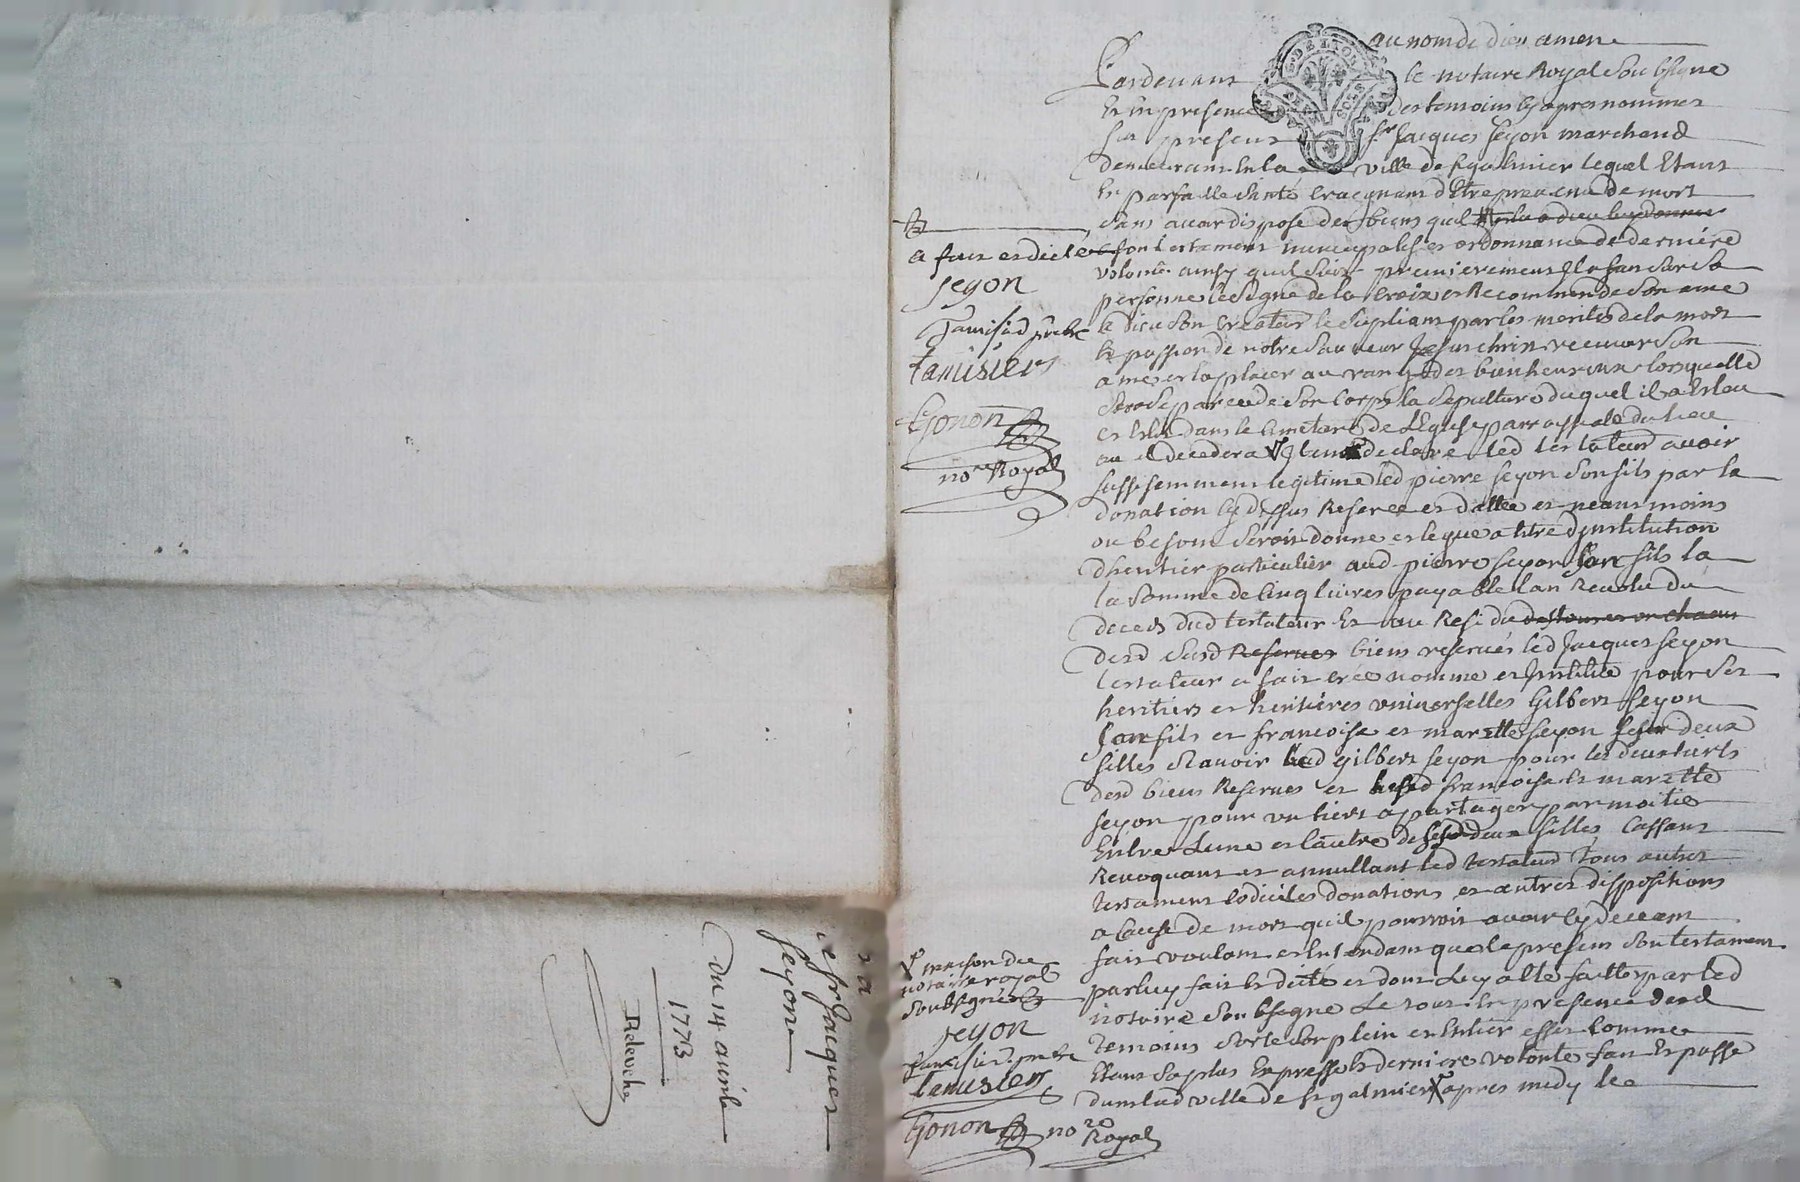 au nom de dieu amen
Pardevant le notaire Royal soubsigne
Et en presence des temoins cy apres nommes
fut present sr Jacques seyon marchand
demeurant en la ville de st galmier lequel Etant
En parfaitte santé craignant d'Etre prevenu de mort
sans avoir dispose des biens quil
a fait et dicté son testament nuncupatif et ordonnance de derniére
volonté ainsy quil suit premierement Il a fait sur sa
personne le signe de la croix et Recommende son ame
a dieu son createur le supliant par les merites de la mort
Et passion de notre sauveur Jesus christ recevoir son
ame et la placer au rang des bienheureux lorsquelle
sera separeé de son corps la sepulture duquel il a Esleu
et Eslit dans le cimetiere de L'Eglise parroissiale du lieu
ou il decedera declare led testateur avoir
suffisemment legitimé led pierre seyon son fils par la
donation cy dessus Reserée et dattée et neantmoins
ou besoin seroit donne et legue a titre d'institution
d'heritier particulier aud pierre seyon son fils la
la somme de cinq livres payable lan Revolu du
deces dud testateur Et au Residu
desd susd Reserves biens reservés led Jacques seyon
testateur a fait creé nomme et Institue pour ses
heritiers et heritiéres universelles Gilbert seyon
son fils et francoise et mariette seyon ses deux
filles scavoir led gilbert seyon pour les deux tiers
desd biens Reserves et lesd francoise Et mariette
seyon pour un tiers a partager par moitié
Entre Lune et l'autre de sesd deux filles Cassant
Revoquant et annullant led testateur Tous autres
testament codiciles donations et autres dispositions
a cause de mort quil pourroit avoir cy devant
fait voulant et Entendant que le present son testament
par luy fait Et dicté et dont Luy a été faitte par led
notaire soubsigne Le tout En presence desd
temoins sorte son plein et Entier effet comme
Etant sa plus Expresse Et derniere volonté fait Et passé
dans lad ville de st galmier apres midy le
Et
a fait et dicté
seyon
Jamisier
Gonon
nore Royal
maison du
notaire royal
soubsigné
seyon
Gonon nore
Royal
sr Jacques
seyon
Du 14 avrile
1773